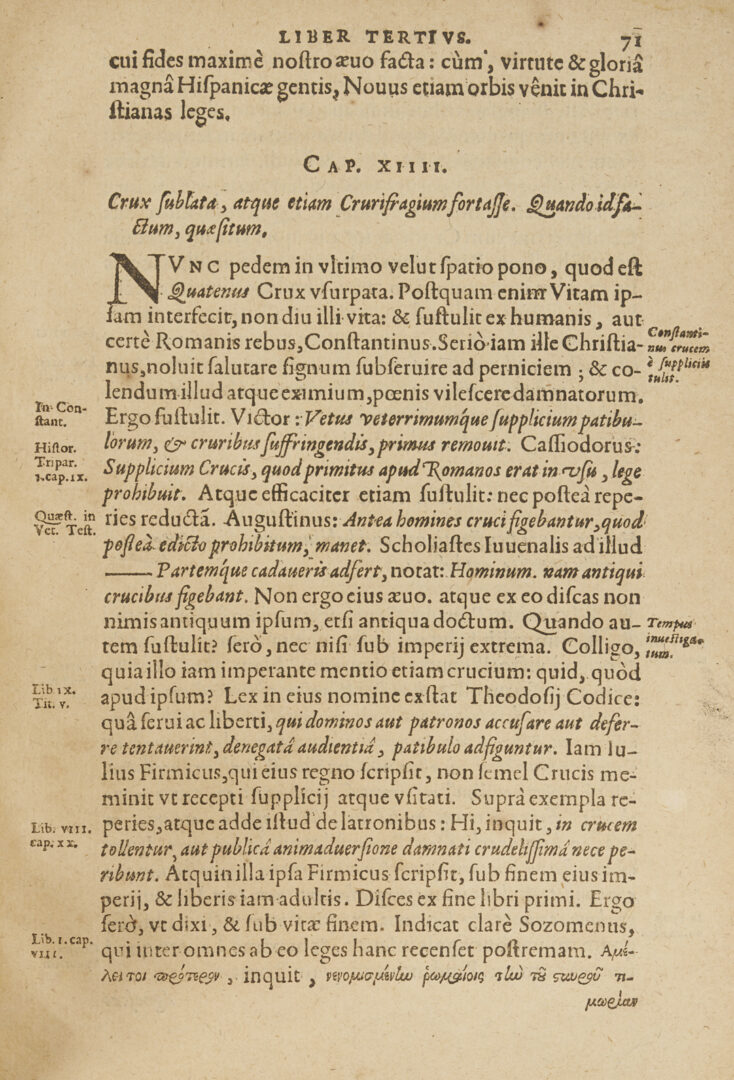 LIBER TERTIVS. 71
cui fides maximè nostro æuo facta: cùm, virtute & gloriâ
magnâ Hispanicæ gentis, Nouus etiam orbis vênit in Chri-
stianas leges.
CAP. XIIII.
Crux sublata, atque etiam Crurifragium fortasse. Quando id fa-
ctum, quæsitum.
NVNC pedem in vltimo velut spatio pono, quod est
Quatenus Crux vsurpata. Postquam enim Vitam ip-
sam interfecit, non diu illi vita: & sustulit ex humanis, aut
certè Romanis rebus, Constantinus. Seriò iam ille Christia-
nus, noluit salutare signum subseruire ad perniciem; & co-
lendum illud atque eximium, pœnis vilescere damnatorum.
Constanti-
nus crucem
è suppliciis
tulit.
Ergo sustulit. Victor: Vetus veterrimumq́ue supplicium patibu-
lorum, & cruribus suffringendis, primus remouit. Cassiodorus:
Supplicium Crucis, quod primitus apud Romanos erat in vsu, lege
prohibuit. Atque efficaciter etiam sustulit: nec posteà repe-
ries reductā. Augustinus: Antea homines cruci figebantur, quod
posteà edicto prohibitum, manet. Scholiastes Iuuenalis ad illud
In Con-
stant.
Histor.
Tripar.
1. cap. IX.
Quæst. in
Vet. Test.
—— Partemq́ue cadaueris adfert, notat: Hominum. nam antiqui
crucibus figebant. Non ergo eius æuo. atque ex eo discas non
nimis antiquum ipsum, etsi antiqua doctum. Quando au-
tem sustulit? serò, nec nisi sub imperij extrema. Colligo,
Tempus
inuestiga-
tum.
quia illo iam imperante mentio etiam crucium: quid, quòd
apud ipsum? Lex in eius nomine exstat Theodosij Codice:
quâ serui ac liberti, qui dominos aut patronos accusare aut defer-
re tentauerint, denegatâ audientiâ, patibulo adfiguntur. Iam Iu-
Lib. IX.
Tit. V.
lius Firmicus, qui eius regno scripsit, non semel Crucis me-
minit vt recepti supplicij atque vsitati. Suprà exempla re-
peries, atque adde istud de latronibus: Hi, inquit, in crucem
tollentur, aut publicâ animaduersione damnati crudelissimâ nece pe-
ribunt. Atqui n illa ipsa Firmicus scripsit, sub finem eius im-
Lib. VIII.
cap. XX.
perij, & liberis iam adultis. Disces ex fine libri primi. Ergo
serò, vt dixi, & sub vitæ finem. Indicat clarè Sozomenus,
qui inter omnes ab eo leges hanc recenset postremam. Ἀμέ-
λει τοι πρότερον, inquit, νενομισμένην ῥωμαίοις τὴν τοῦ σταυροῦ τι-
Lib. I. cap.
VIII.
μωρίαν